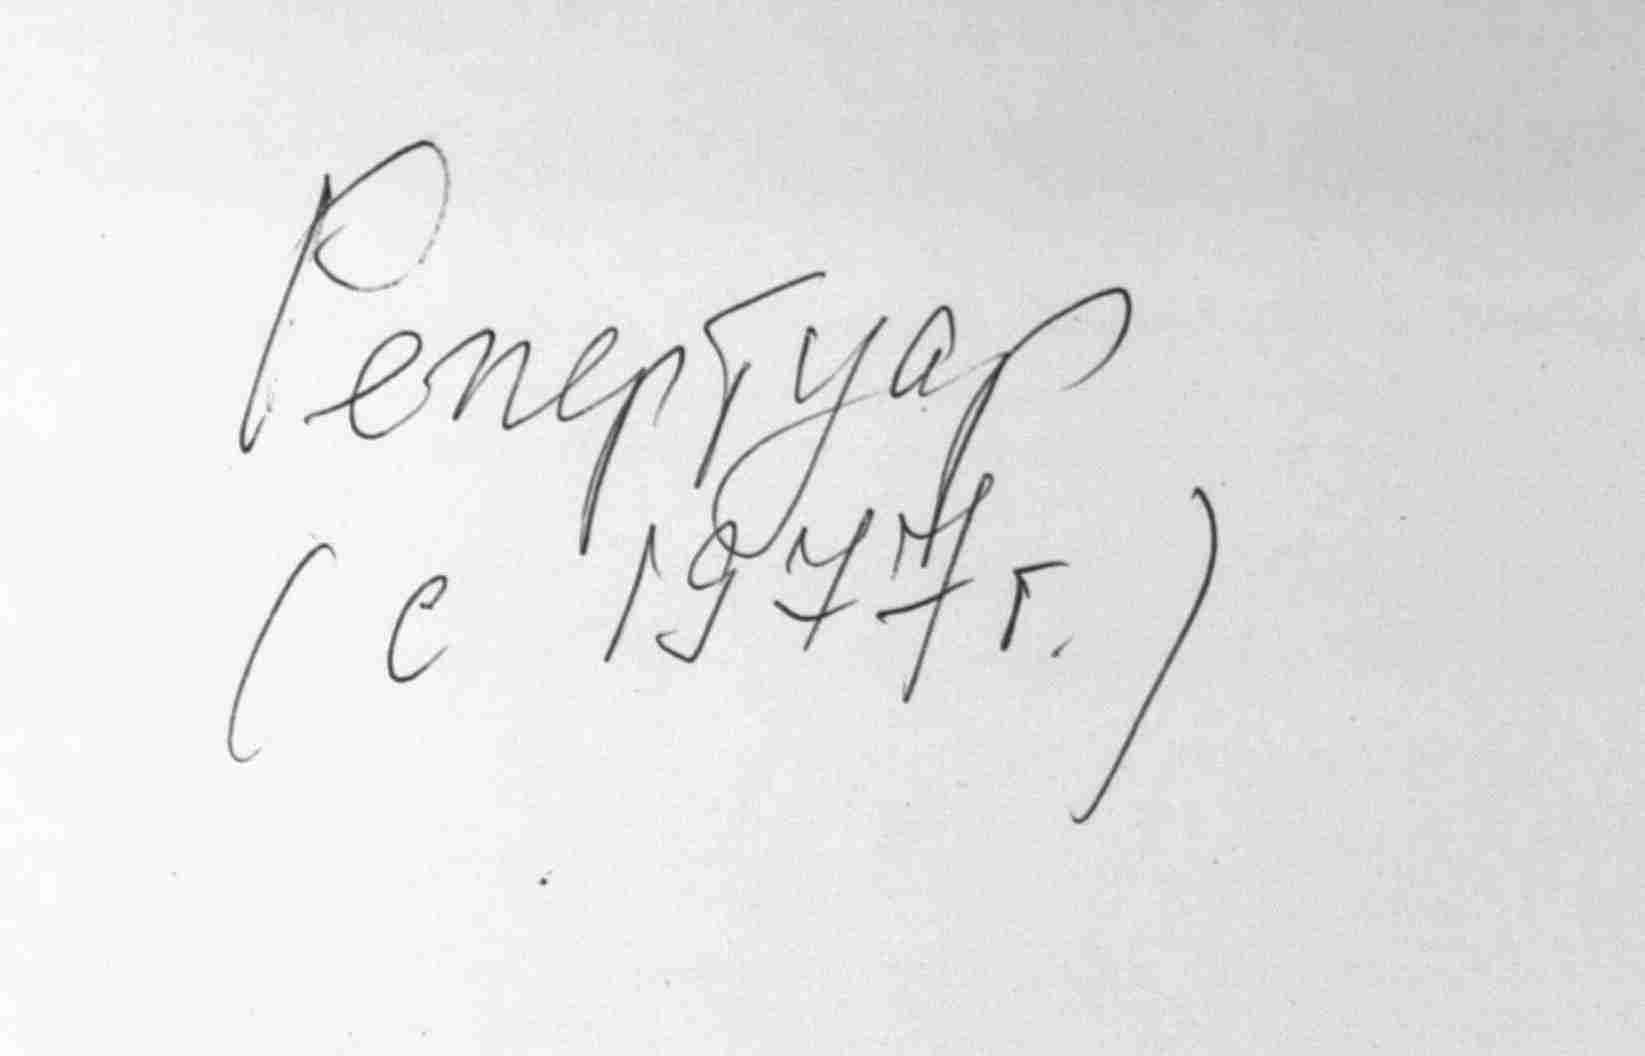 Репертуар
(с 1977 г.)